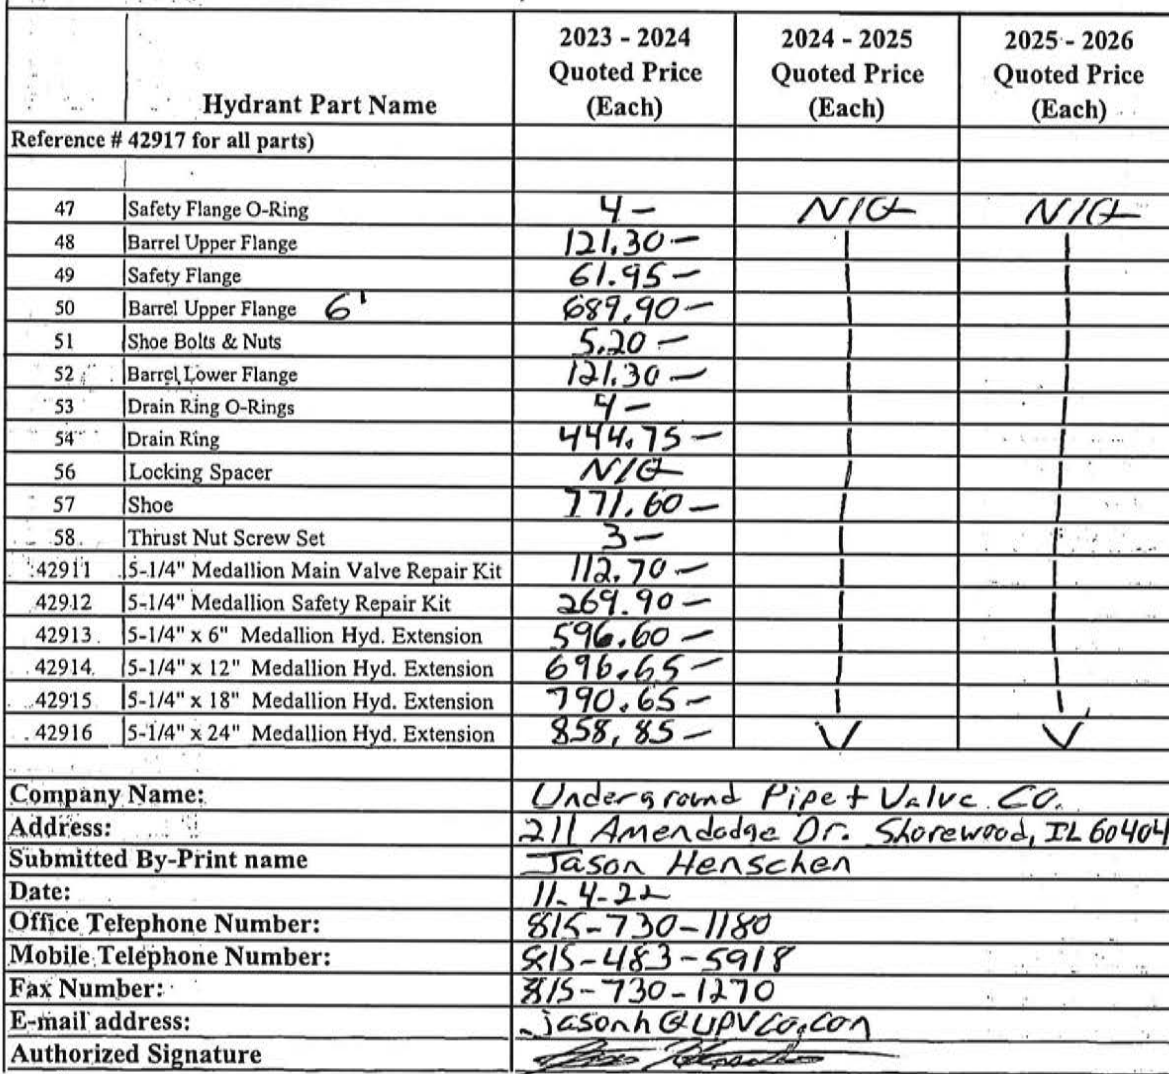 2023 - 2024 2024 - 2025 2025 - 2026
Quoted Price Quoted Price Quoted Price
Hydrant Part Name (Each) (Each) (Each)
Reference # 42917 for all parts)
47 Safety Flange O-Ring 4 — N/Q N/Q
48 Barrel Upper Flange 121.30 —
49 Safety Flange 61.95 —
50 Barrel Upper Flange 6' 689.90 —
51 Shoe Bolts & Nuts 5.20 —
52 Barrel Lower Flange 121.30 —
53 Drain Ring O-Rings 4 —
54 Drain Ring 444.75 —
56 Locking Spacer N/Q
57 Shoe 771.60 —
58 Thrust Nut Screw Set 3 —
42911 5-1/4" Medallion Main Valve Repair Kit 112.70 —
42912 5-1/4" Medallion Safety Repair Kit 269.90 —
42913 5-1/4" x 6" Medallion Hyd. Extension 596.60 —
42914 5-1/4" x 12" Medallion Hyd. Extension 696.65 —
42915 5-1/4" x 18" Medallion Hyd. Extension 790.65 —
42916 5-1/4" x 24" Medallion Hyd. Extension 858,85 —
Company Name: Underground Pipe + Valve Co.
Address: 211 Amendodge Dr. Shorewood, IL 60404
Submitted By-Print name Jason Henschen
Date: 11-4-22
Office Telephone Number: 815-730-1180
Mobile Telephone Number: 815-483-5918
Fax Number: 815-730-1270
E-mail address: jasonh@upvco.com
Authorized Signature